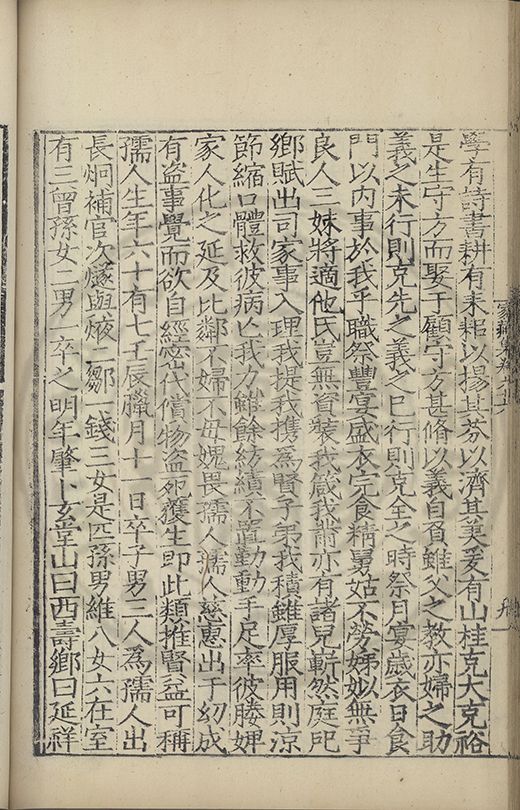 學有詩書耕有耒耜以揚其芬以濟其美爰有山桂克大克裕
是生守方而娶于顧守方甚脩以義自負雖父之教亦婦之助
義之未行則克先之義之已行則克全之時祭月宴歲衣日食
門以内事於我乎職祭豐宴盛衣完食精舅姑不勞娣姒無爭
良人三妹將適他氏豈無資裝我箴我黹亦有諸兒嶄然庭戺
鄉賦出司家事入理我提我携爲賢子弟我積雖厚服用則涼
節縮口體救彼病亡我力雖餘紡績不置勤動手足率彼媵婢
家人化之延及比鄰不婦不母媿畏孺人孺人慈惠出于幼成
有盗事覺而欲自經密代償物盗死獲生即此類推賢益可稱
孺人生年六十有七壬辰臘月十一日卒子男三人爲孺人出
長炯補官次燧與㷟二鄒一錢三女是匹孫男維八女六在室
有三曾孫女二男一卒之明年肇卜玄堂山曰西壽鄉曰延祥